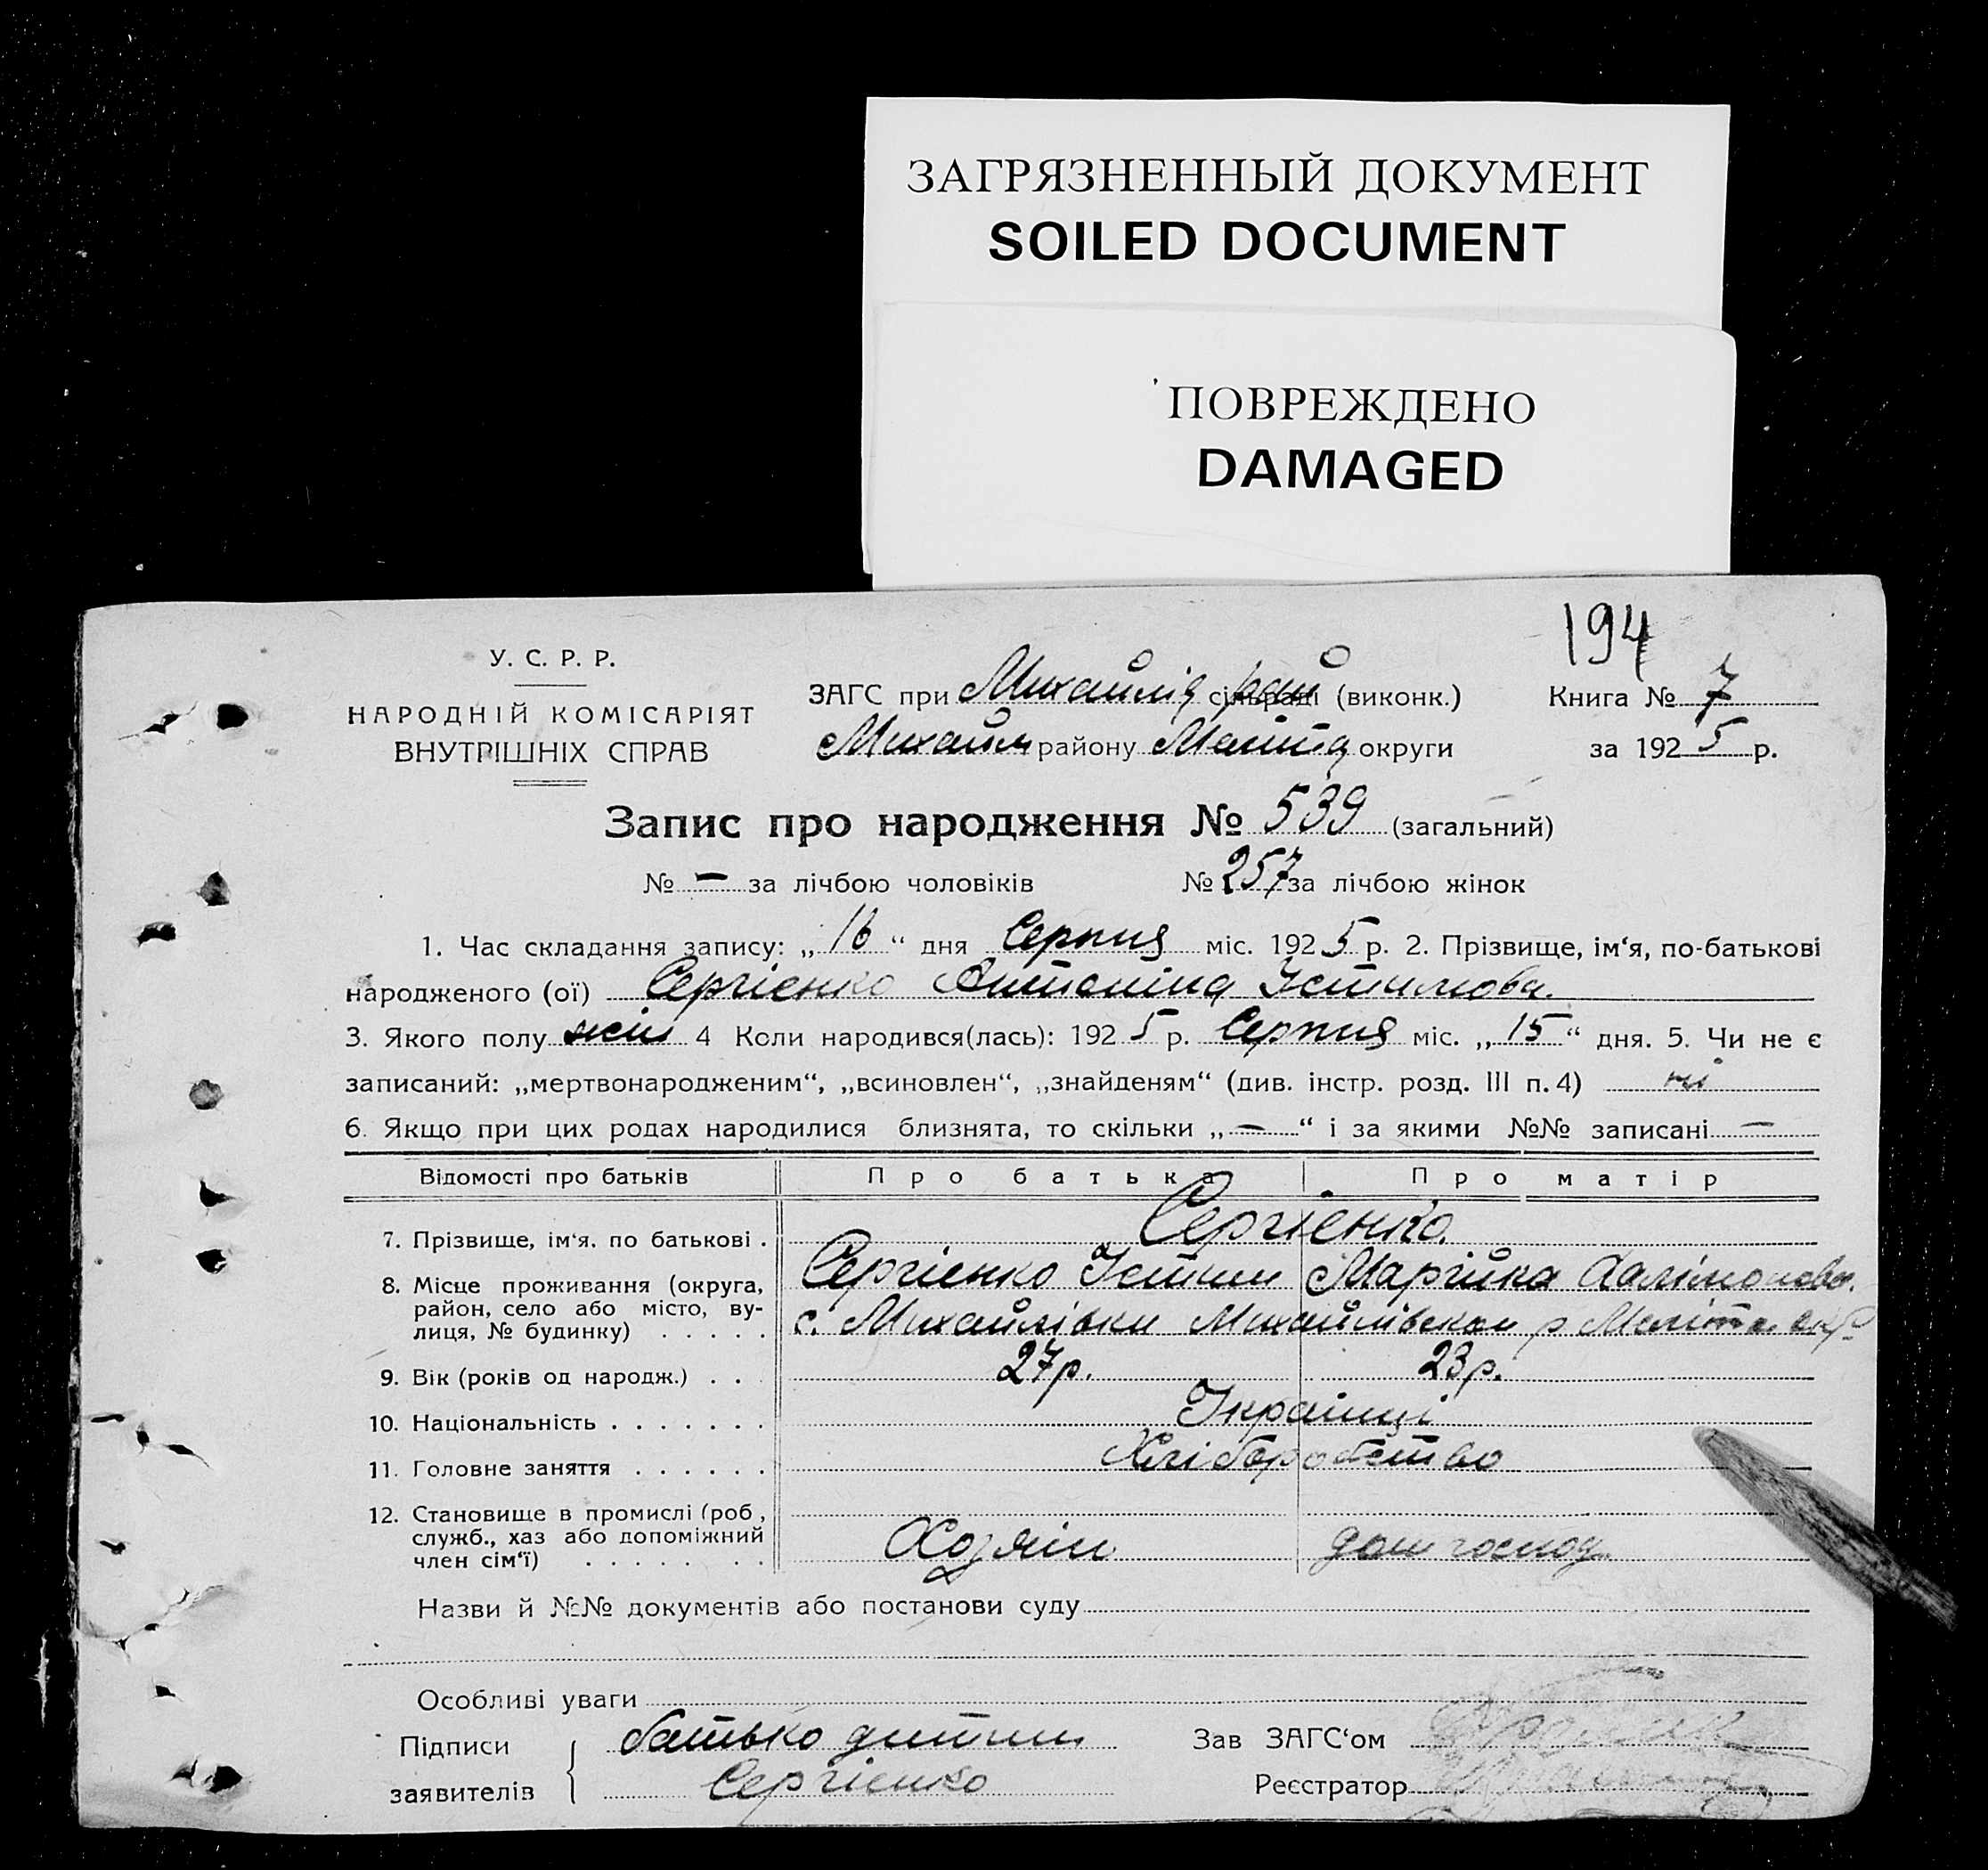 ЗАГРЯЗНЕННЫЙ ДОКУМЕНТ
SOILED DOCUMENT
ПОВРЕЖДЕНО
DAMAGED
194
У. С. Р. Р.
НАРОДНІЙ КОМІСАРІЯТ
ВНУТРІШНІХ СПРАВ
ЗАГС при Михайлів рай сільраді (виконк.)
Книга № 7
Михайл району Меліт округи
за 1925 р.
Запис про народження № 539 (загальний)
№ — за лічбою чоловіків № 257 за лічбою жінок
1. Час складання запису: „16“ дня Серпня міс. 1925 р. 2. Прізвище, ім‘я, по-батькові
народженого (ої) Сергієнко Антоніна Устимова.
3. Якого полу жін 4 Коли народився(лась): 1925 р. Серпня міс. „15“ дня. 5. Чи не є
записаний: „мертвонародженим“, „всиновлен“, „знайденям“ (див. інстр. розд. III п. 4) ні
6. Якщо при цих родах народилися близнята, то скільки „—“ і за якими №№ записані —
Відомості про батьків Про батька Про матір
7. Прізвище, ім‘я, по батькові . Сергієнко.
Сергієнко Устим Марійка
8. Місце проживання (округа, район, село або місто, вулиця, № будинку) . . . . . с. Михайлівки Михайлівскои р Меліт окр
9. Вік (років од народж.) . . . 27р. 23р.
10. Національність . . . . . . . Українці
11. Головне заняття . . . . . . Хліборобство
12. Становище в промислі (роб, служб., хаз або допоміжний член сім‘ї) . . . . . . . Хозяїн дом господ.
Назви й №№ документів або постанови суду
Особливі уваги
Підписи заявителів
батько дитини
Сергієнко
Зав ЗАГС‘ом
Реєстратор